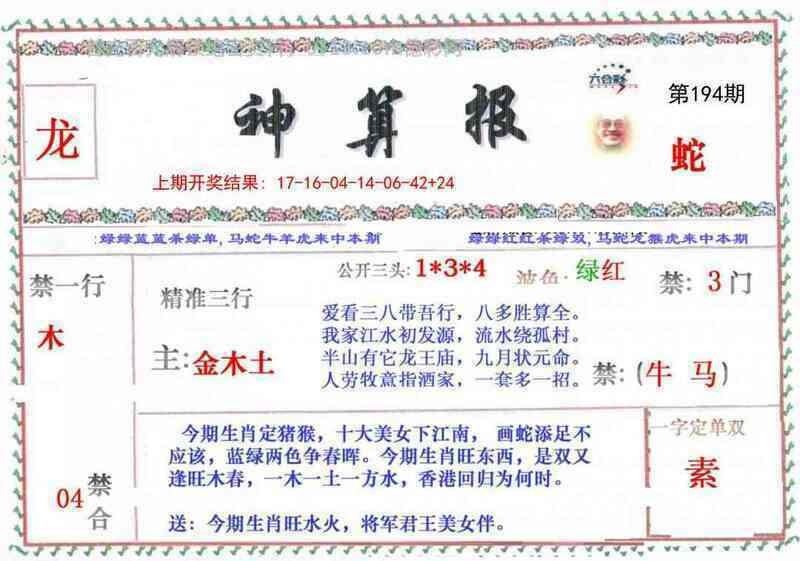 六合彩
第194期
龙
神算报
蛇
上期开奖结果：17-16-04-14-06-42+24
绿绿蓝蓝杀绿单,马蛇牛羊虎来中本期
绿绿红红杀绿双,马蛇龙猴虎来中本期
禁一行
木
精准三行
主:金木土
公开三头:1*3*4
波色:绿红
禁:3门
爱看三八带吾行，八多胜算全。
我家江水初发源，流水绕孤村。
半山有它龙王庙，九月状元命。
人劳牧意指酒家，一套多一招。
禁:(牛 马)
04
禁合
今期生肖定猪猴，十大美女下江南， 画蛇添足不
应该，蓝绿两色争春晖。今期生肖旺东西，是双又
逢旺木春，一木一土一方水，香港回归为何时。
送：今期生肖旺水火，将军君王美女伴。
一字定单双
素